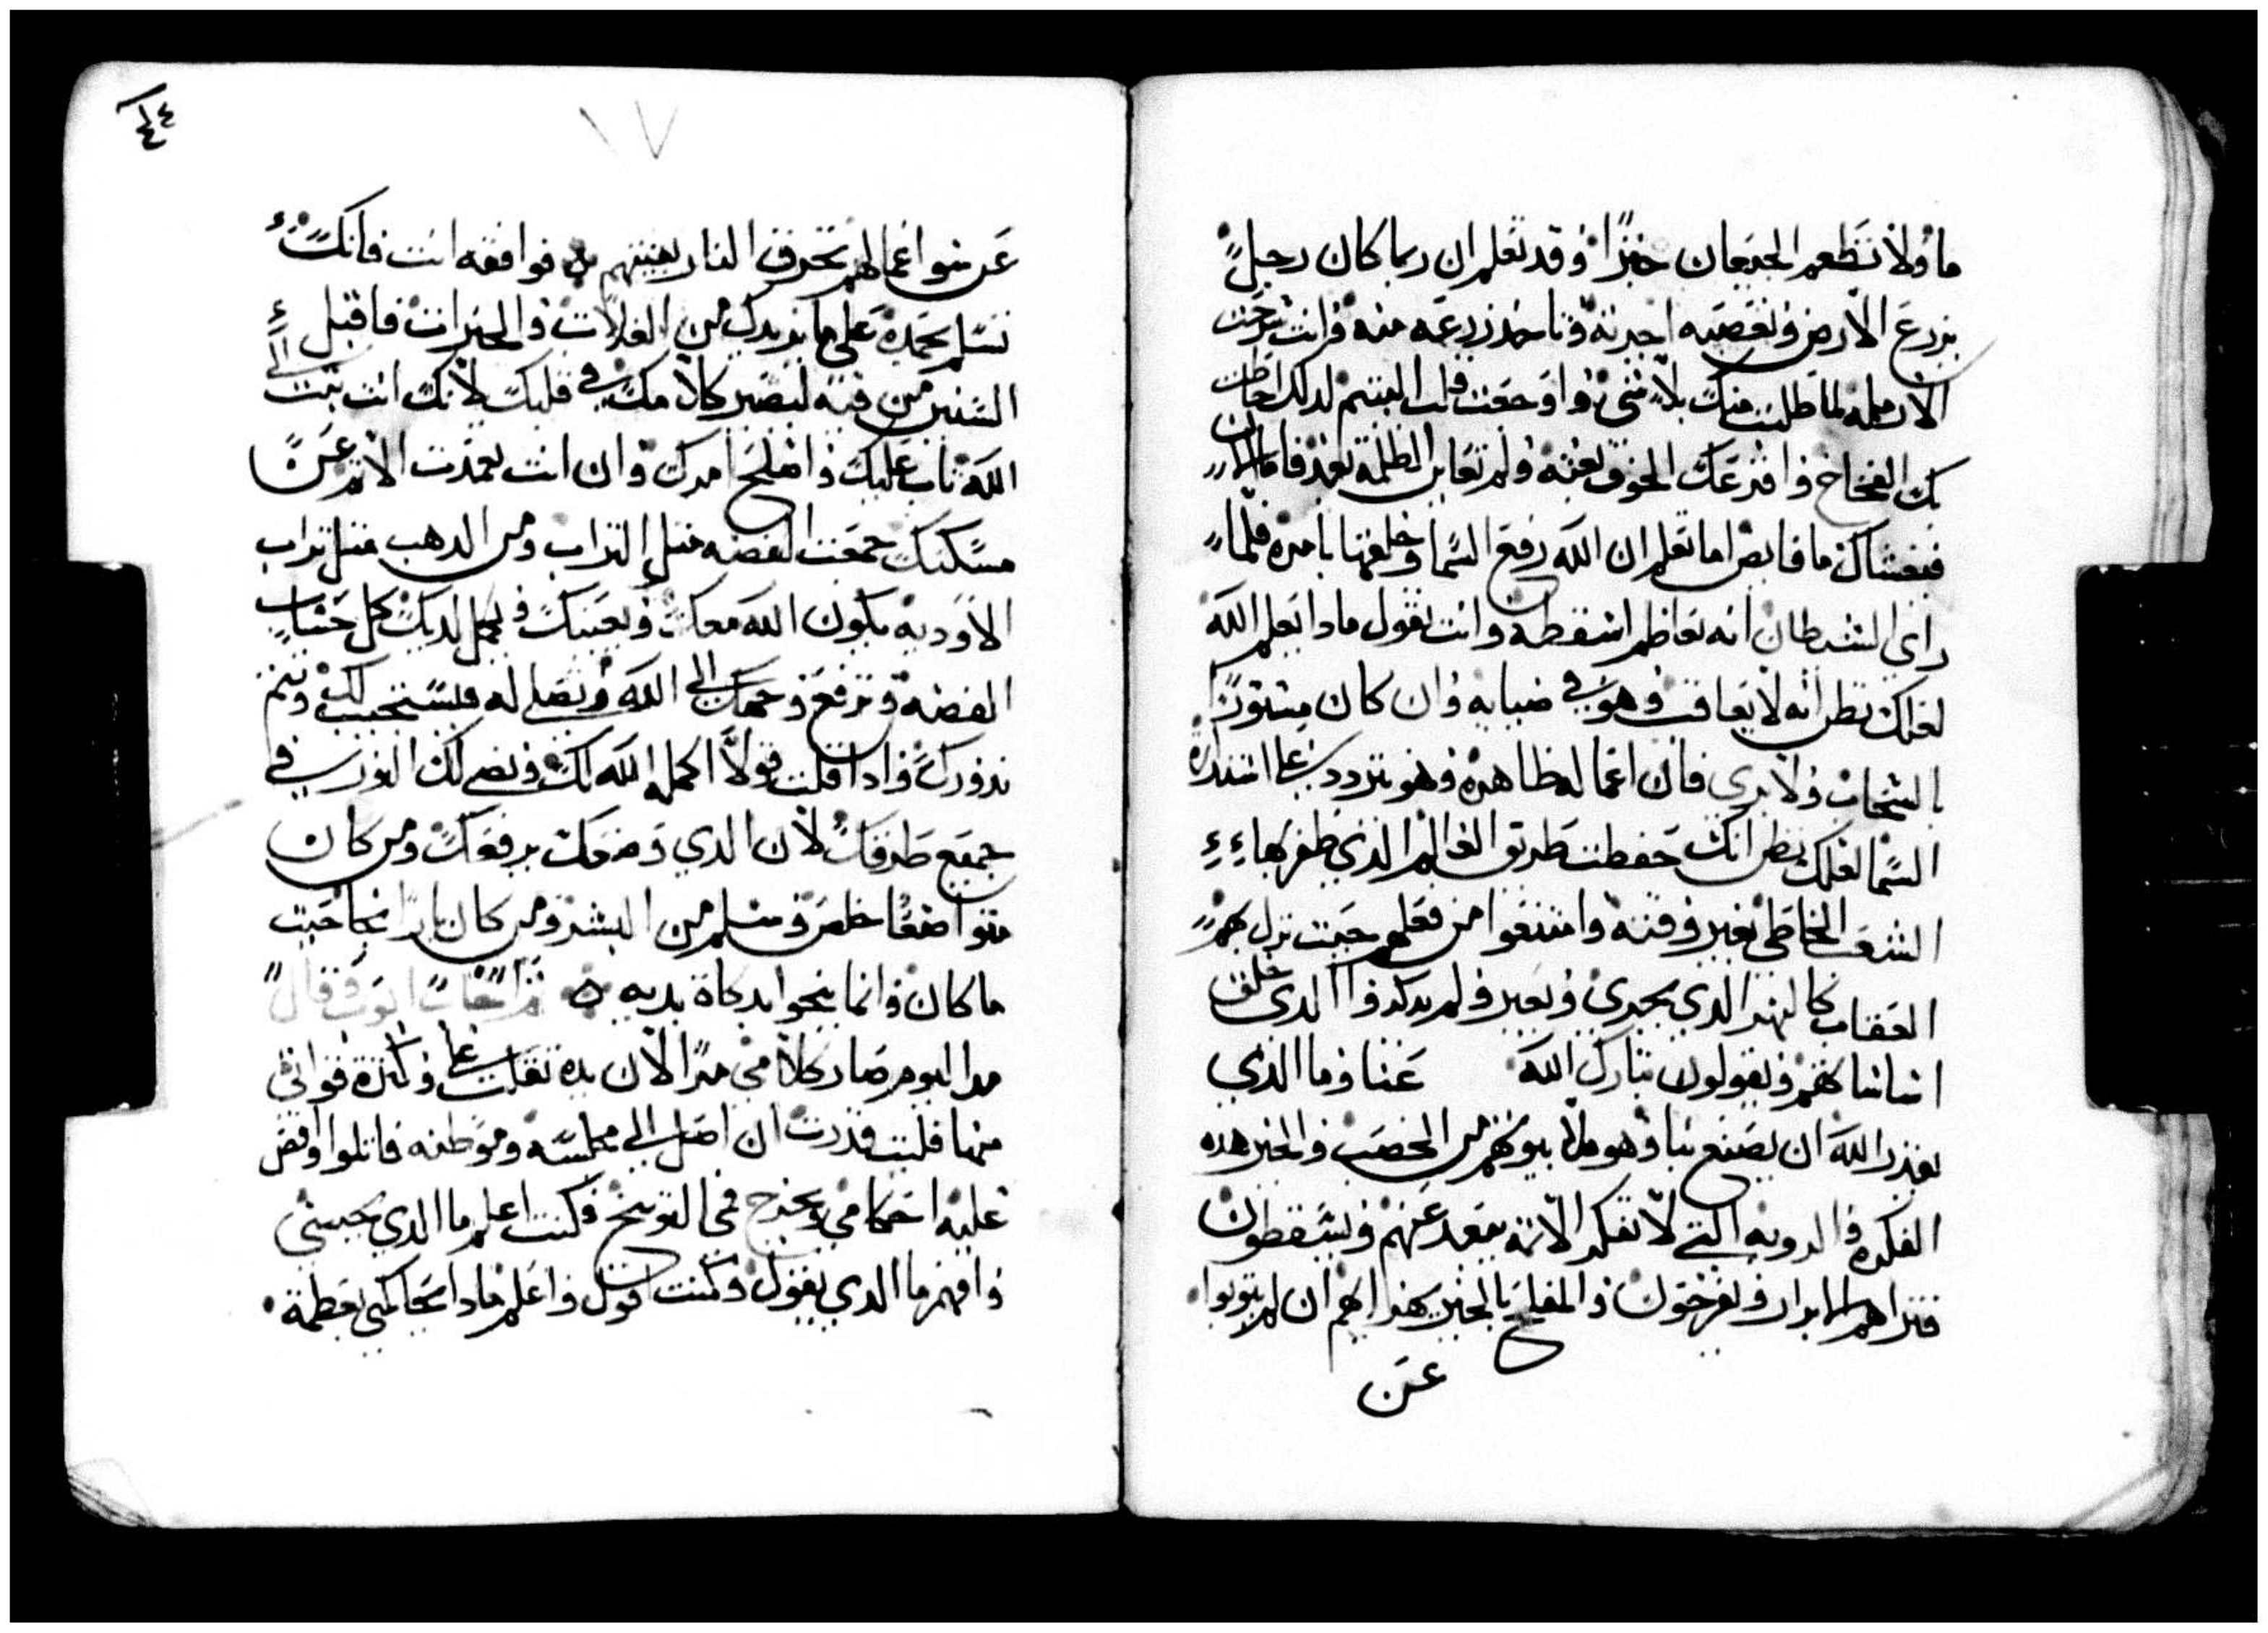 ما ولا تطعم الجيعان خبزا وقد تعلم ان ربما كان رجل
يزرع الارض وتغصبه اجرته وتاخد زرعه منه وانت
الارمله لما طلبت منك بلا شي واوجعت قلب اليتيم لدلك احاطت
بك الفخاخ وافزعك الخوف بغته ولم تعاين الظلمه بعد فاما الان
فيغشاك ما فايض اما تعلم ان الله رفع السما وخلقها بامره فلما
راي الشيطان انه تعاظم اسقطه وانت تقول مادا يعلم الله
لعلك تظن انه لا يعاقب وهو في ضبابه وان كان مستورا
بالسحاب ولا يري فان اعماله ظاهره وهو يتردد علي استدارة
السما لعلك تظن انك حفظت طريق العالم الذي ظفر بها
الشعب الخاطي بغير وقته وامتنعوا من فعلهم حيت نزل بهم
العقاب كالنهر الذي يجري ويعبر ولم يدكروا الدي خلق
اساساتهم ويقولون تبارك الله عنا وما الذي
يقدر الله ان يصنع بنا وهو ملا بيوتهم من الخصب والخير هده
الفكره والرويه التي لا تفكر الاتمه بيعد عنهم ويسقطون
فتراهم الابرار ويفرحون والمفلح بالخير يهزوا بهم ان لم يتوبوا
عن
٤٤
عن سوا اعمالهم تحرق النار بقيتهم فوافقه انت فانك
تسلم بحمده علي ما يزيدك من الغلات والخيرات فاقبل
السنن من فيه ليصير كلامك في قلبك لانك انت تبت الي
الله تاب عليك واصلح امرك وان انت بعدت الاتم عن
مسكنك جمعت الفضه متل التراب ومن الدهب متل تراب
الاوديه يكون الله معك ويعينك ويجمل لديك كل حساب
الفضه وترفع وجهك الي الله وتصلي له فيستجيب لك وتتم
ندورك وادا قلت قولا اكمله الله لك ويضي لك النور في
جميع طرقك لان الدي وضعك يرفعك ومن كان
متواضعا خلص وسلم من البشر ومن كان بارا نجا حيت
ما كان وانما ينجوا بدكاة يديه فاجاب ايوب وقال
هدا اليوم صار كلامي مرا لان يده تقلت علي وكترة قواتي
منها فليت قدرت ان اصل الي مجلسه وموطنه فاتلوا اوقص
عليه احكامي ويخرج في التوبيخ وكنت اعلم ما الدي يجيبني
وافهم ما الدي يقول وكنت قول واعلم مادا يحاكمي بعظمة